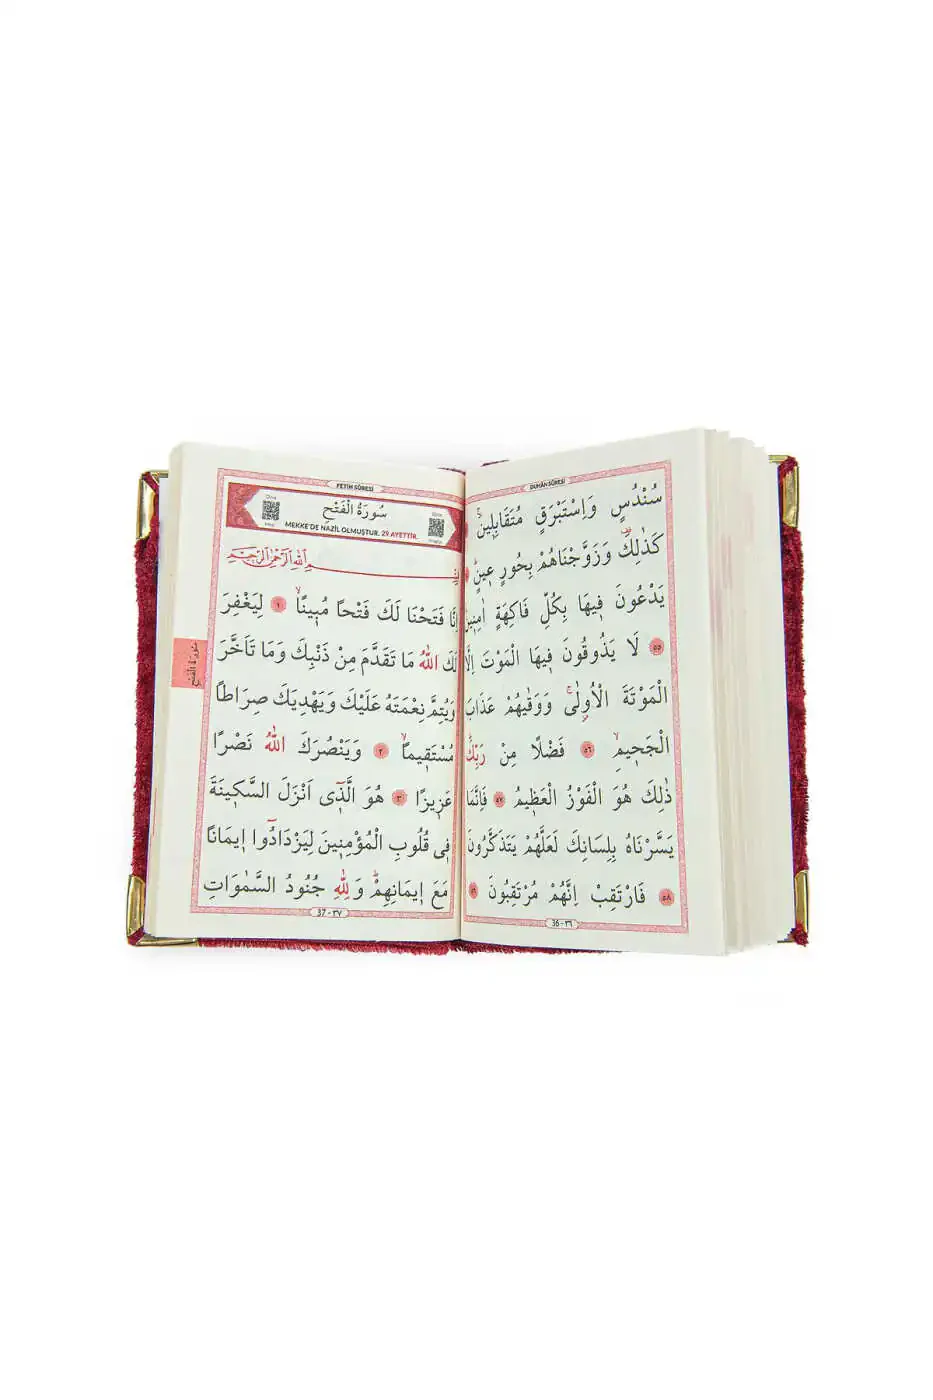 DUHÂN SÛRESİ
سُنْدُسٍ وَاِسْتَبْرَقٍ مُتَقَابِلٖينَۚ
كَذٰلِكَ وَزَوَّجْنَاهُمْ بِحُورٍ عٖينٍۜ
يَدْعُونَ فٖيهَا بِكُلِّ فَاكِهَةٍ اٰمِنٖينَۙ
٥٥ لَا يَذُوقُونَ فٖيهَا الْمَوْتَ اِلَّا
الْمَوْتَةَ الْاُولٰىۚ وَوَقٰيهُمْ عَذَابَ
الْجَحٖيمِۙ ٥٦ فَضْلًا مِنْ رَبِّكَۜ
ذٰلِكَ هُوَ الْفَوْزُ الْعَظٖيمُ ٥٧ فَاِنَّمَا
يَسَّرْنَاهُ بِلِسَانِكَ لَعَلَّهُمْ يَتَذَكَّرُونَ
٥٨ فَارْتَقِبْ اِنَّهُمْ مُرْتَقِبُونَ ٥٩
36 - ٣٦
FETİH SÛRESİ
سُورَةُ الْفَتْحِ
MEKKE'DE NAZİL OLMUŞTUR. 29 AYETTİR.
بِسْمِ اللهِ الرَّحْمٰنِ الرَّحٖيمِ
اِنَّا فَتَحْنَا لَكَ فَتْحًا مُبٖينًاۙ ١ لِيَغْفِرَ
لَكَ اللهُ مَا تَقَدَّمَ مِنْ ذَنْبِكَ وَمَا تَاَخَّرَ
وَيُتِمَّ نِعْمَتَهُ عَلَيْكَ وَيَهْدِيَكَ صِرَاطًا
مُسْتَقٖيمًاۙ ٢ وَيَنْصُرَكَ اللهُ نَصْرًا
عَزٖيزًا ٣ هُوَ الَّذٖٓى اَنْزَلَ السَّكٖينَةَ
فٖى قُلُوبِ الْمُؤْمِنٖينَ لِيَزْدَادُٓوا اٖيمَانًا
مَعَ اٖيمَانِهِمْۜ وَلِلّٰهِ جُنُودُ السَّمٰوَاتِ
37 - ٣٧
سُورَةُ الْفَتْحِ